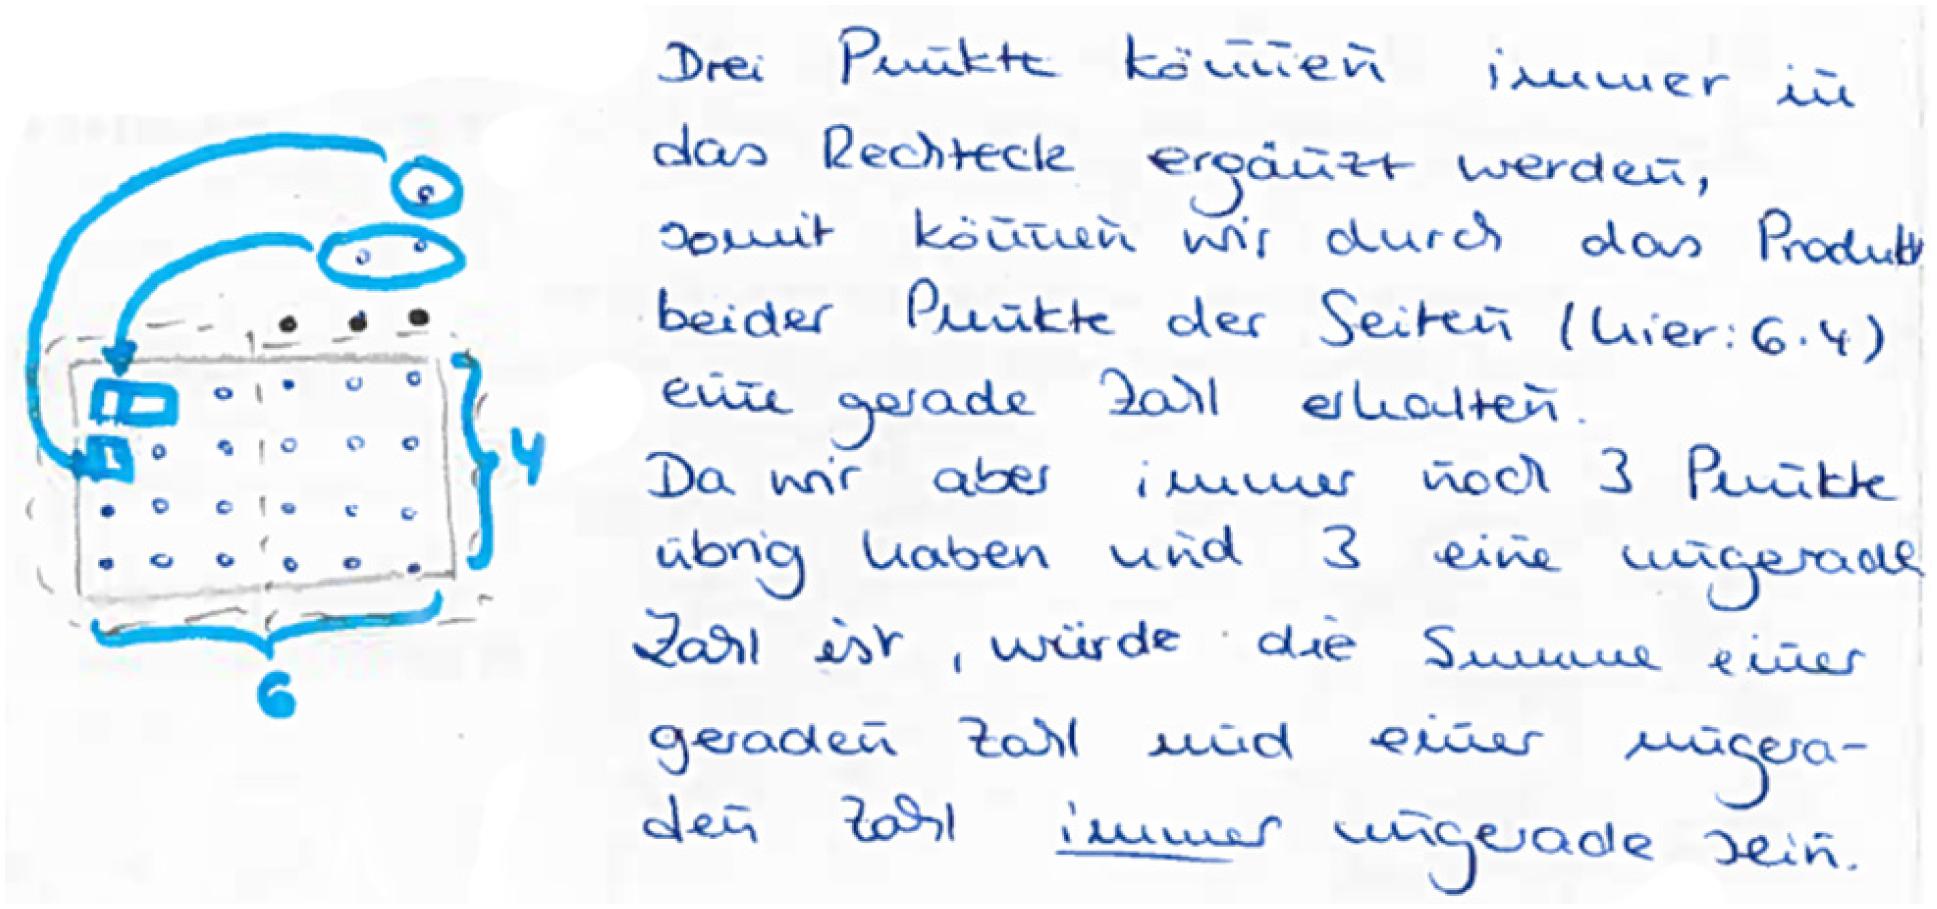 Drei Punkte können immer in
das Rechteck ergänzt werden,
somit können wir durch das Produkt
beider Punkte der Seiten (hier: 6·4)
eine gerade Zahl erhalten.
Da wir aber immer noch 3 Punkte
übrig haben und 3 eine ungerade
Zahl ist, würde die Summe einer
geraden Zahl und einer ungera-
den Zahl immer ungerade sein.
4
6